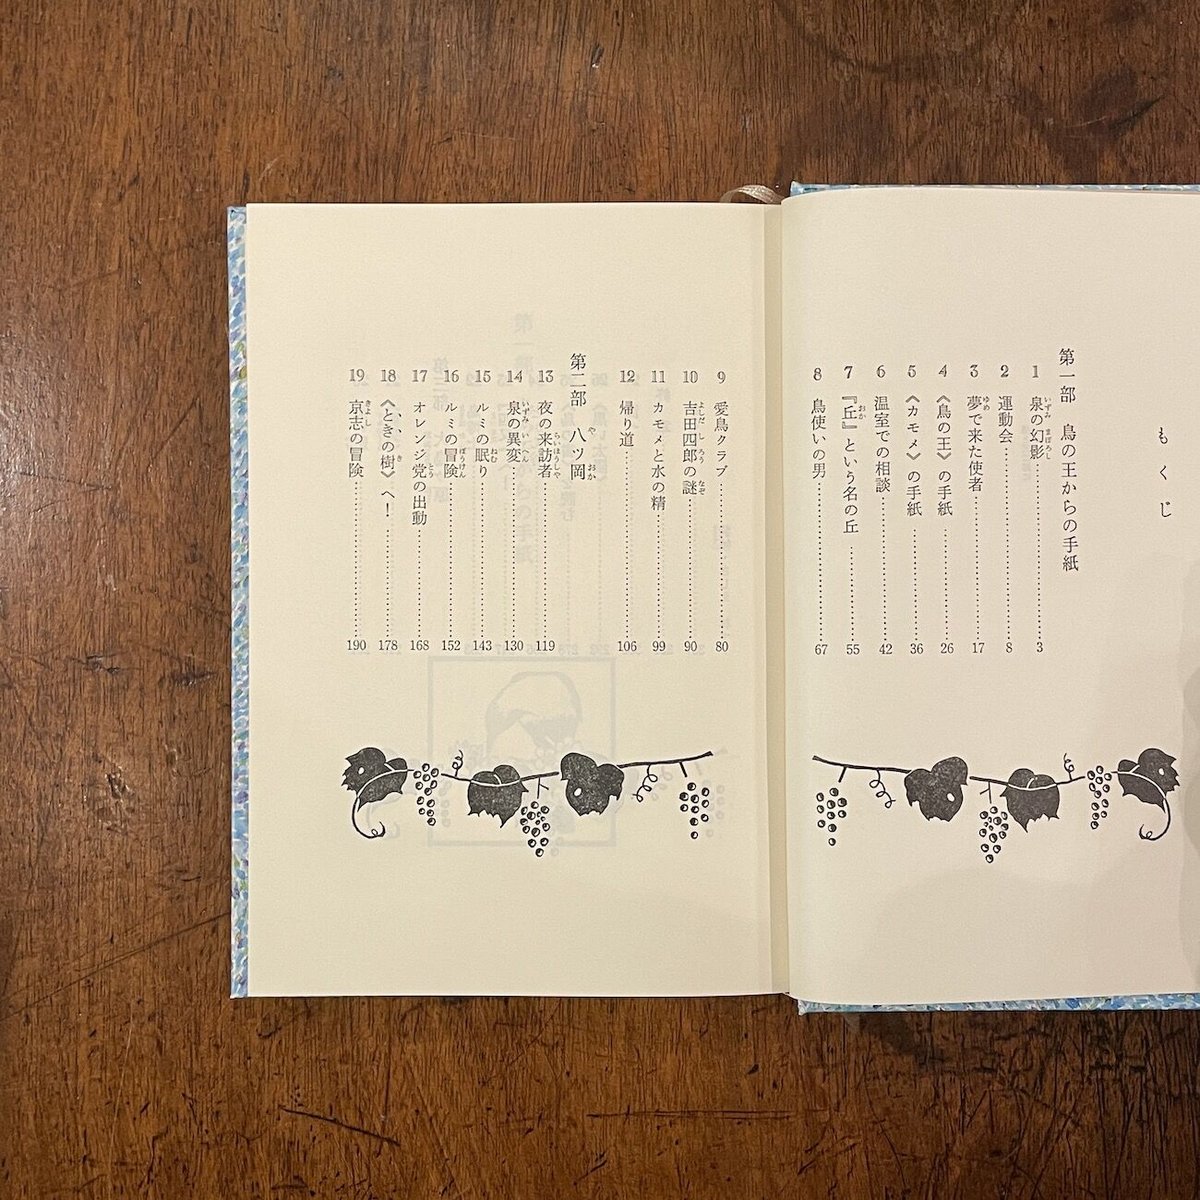 もくじ
第一部　鳥の王からの手紙
1　泉の幻影……3
2　運動会……8
3　夢で来た使者……17
4　《鳥の王》の手紙……26
5　《カモメ》の手紙……36
6　温室での相談……42
7　『丘』という名の丘……55
8　鳥使いの男……67
9　愛鳥クラブ……80
10　吉田四郎の謎……90
11　カモメと水の精……99
12　帰り道……106
第二部　八ツ岡
13　夜の来訪者……119
14　泉の異変……130
15　ルミの眠り……143
16　ルミの冒険……152
17　オレンジ党の出動……168
18　《ときの樹》へ！……178
19　京志の冒険……190